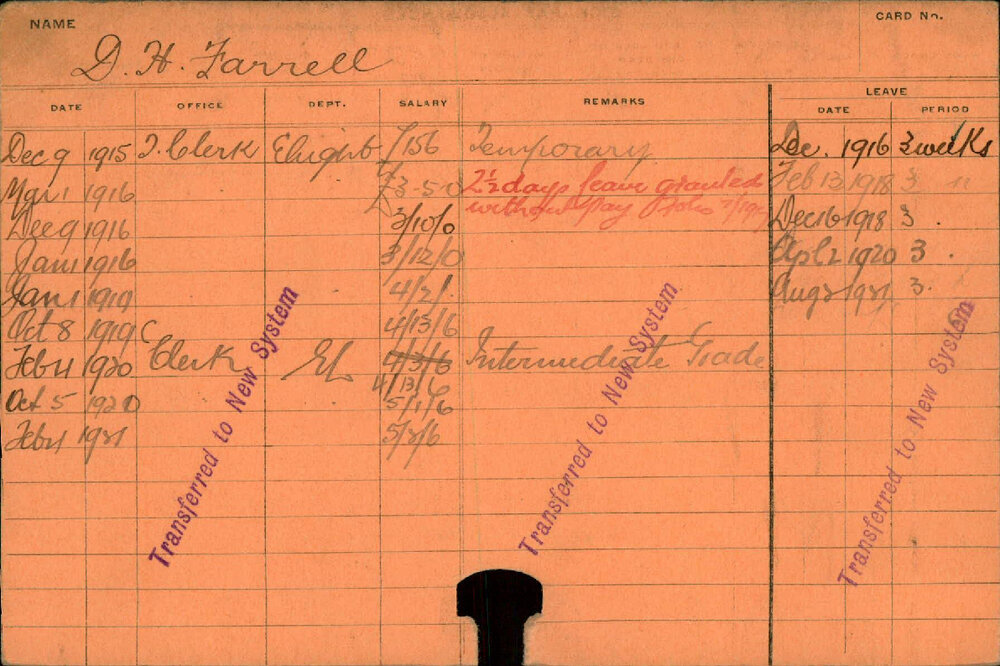 NAME
CARD No.
D. H. Farrell
LEAVE
DATE OFFICE DEPT. SALARY REMARKS DATE PERIOD
Dec 9 1915 J. Clerk Elught £/156 Temporary Dec. 1916 3 weeks
Mar 1 1916 £3-5-0 2½ days leave granted Feb 13 1918 3 "
without pay
Dec 9 1916 3/10/0 Dec 16 1918 3 .
Jan 1 1916 3/12/0 Apl 2 1920 3 .
Jan 1 1919 4/2/. Aug 2 1921 3 .
Oct 8 1919 4/13/6
Feb 11 1920 Clerk EL 4/3/6 Intermediate Grade
4/13/6
Oct 5 1920 5/1/6
Feb 11 1921 5/2/6
Transferred to New System
Transferred to New System
Transferred to New System